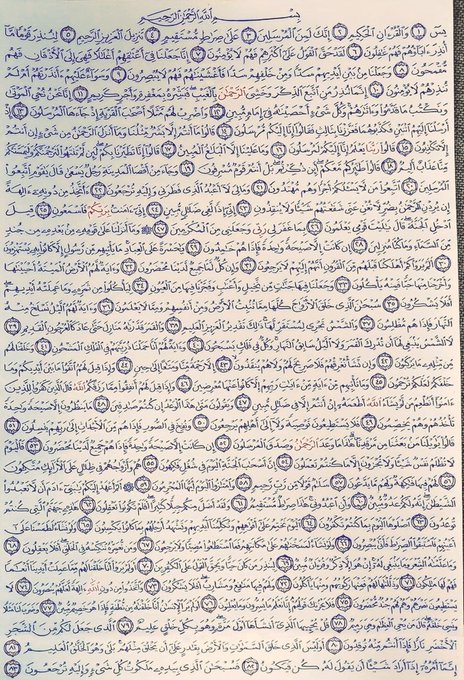 بِسْمِ اللَّهِ الرَّحْمَٰنِ الرَّحِيمِ
يس ١ والقرءان الحكيم ٢ إنك لمن المرسلين ٣ على صراط مستقيم ٤ تنزيل العزيز الرحيم ٥ لتنذر قوما ما
أنذر ءاباؤهم فهم غافلون ٦ لقد حق القول على أكثرهم فهم لا يؤمنون ٧ إنا جعلنا في أعناقهم أغلالا فهي إلى الأذقان فهم
مقمحون ٨ وجعلنا من بين أيديهم سدا ومن خلفهم سدا فأغشيناهم فهم لا يبصرون ٩ وسواء عليهم ءأنذرتهم أم لم
تنذرهم لا يؤمنون ١٠ إنما تنذر من اتبع الذكر وخشي الرحمن بالغيب فبشره بمغفرة وأجر كريم ١١ إنا نحن نحي الموتى
ونكتب ما قدموا وءاثارهم وكل شيء أحصيناه في إمام مبين ١٢ واضرب لهم مثلا أصحاب القرية إذ جاءها المرسلون ١٣ إذ
أرسلنا إليهم اثنين فكذبوهما فعززنا بثالث فقالوا إنا إليكم مرسلون ١٤ قالوا ما أنتم إلا بشر مثلنا وما أنزل الرحمن من شيء إن أنتم
إلا تكذبون ١٥ قالوا ربنا يعلم إنا إليكم لمرسلون ١٦ وما علينا إلا البلاغ المبين ١٧ قالوا إنا تطيرنا بكم لئن لم تنتهوا لنرجمنكم وليمسنكم
منا عذاب أليم ١٨ قالوا طائركم معكم أئن ذكرتم بل أنتم قوم مسرفون ١٩ وجاء من أقصا المدينة رجل يسعى قال ياقوم اتبعوا
المرسلين ٢٠ اتبعوا من لا يسئلكم أجرا وهم مهتدون ٢١ وما لي لا أعبد الذي فطرني وإليه ترجعون ٢٢ ءأتخذ من دونه ءالهة
إن يردن الرحمن بضر لا تغن عني شفاعتهم شيئا ولا ينقذون ٢٣ إني إذا لفي ضلال مبين ٢٤ إني ءامنت بربكم فاسمعون ٢٥ قيل
ادخل الجنة قال ياليت قومي يعلمون ٢٦ بما غفر لي ربي وجعلني من المكرمين ٢٧ وما أنزلنا على قومه من بعده من جند
من السماء وما كنا منزلين ٢٨ إن كانت إلا صيحة واحدة فإذا هم خامدون ٢٩ ياحسرة على العباد ما يأتيهم من رسول إلا كانوا به يستهزءون
٣٠ ألم يروا كم أهلكنا قبلهم من القرون أنهم إليهم لا يرجعون ٣١ وإن كل لما جميع لدينا محضرون ٣٢ وءاية لهم الأرض الميتة أحييناها
وأخرجنا منها حبا فمنه يأكلون ٣٣ وجعلنا فيها جنات من نخيل وأعناب وفجرنا فيها من العيون ٣٤ ليأكلوا من ثمره وما عملته أيديهم
أفلا يشكرون ٣٥ سبحان الذي خلق الأزواج كلها مما تنبت الأرض ومن أنفسهم ومما لا يعلمون ٣٦ وءاية لهم اليل نسلخ منه
النهار فإذا هم مظلمون ٣٧ والشمس تجري لمستقر لها ذلك تقدير العزيز العليم ٣٨ والقمر قدرناه منازل حتى عاد كالعرجون القديم ٣٩
لا الشمس ينبغي لها أن تدرك القمر ولا اليل سابق النهار وكل في فلك يسبحون ٤٠ وءاية لهم أنا حملنا ذريتهم في الفلك المشحون ٤١ وخلقنا لهم
من مثله ما يركبون ٤٢ وإن نشأ نغرقهم فلا صريخ لهم ولا هم ينقذون ٤٣ إلا رحمة منا ومتاعا إلى حين ٤٤ وإذا قيل لهم اتقوا ما بين أيديكم وما
خلفكم لعلكم ترحمون ٤٥ وما تأتيهم من ءاية من ءايات ربهم إلا كانوا عنها معرضين ٤٦ وإذا قيل لهم أنفقوا مما رزقكم الله قال الذين كفروا للذين
ءامنوا أنطعم من لو يشاء الله أطعمه إن أنتم إلا في ضلال مبين ٤٧ ويقولون متى هذا الوعد إن كنتم صادقين ٤٨ ما ينظرون إلا صيحة واحدة
تأخذهم وهم يخصمون ٤٩ فلا يستطيعون توصية ولا إلى أهلهم يرجعون ٥٠ ونفخ في الصور فإذا هم من الأجداث إلى ربهم ينسلون ٥١
قالوا ياويلنا من بعثنا من مرقدنا هذا ما وعد الرحمن وصدق المرسلون ٥٢ إن كانت إلا صيحة واحدة فإذا هم جميع لدينا محضرون ٥٣ فاليوم
لا تظلم نفس شيئا ولا تجزون إلا ما كنتم تعملون ٥٤ إن أصحاب الجنة اليوم في شغل فاكهون ٥٥ هم وأزواجهم في ظلال على الأرائك متكئون
٥٦ لهم فيها فاكهة ولهم ما يدعون ٥٧ سلام قولا من رب رحيم ٥٨ وامتازوا اليوم أيها المجرمون ٥٩ ألم أعهد إليكم يابني ءادم أن لا تعبدوا
الشيطان إنه لكم عدو مبين ٦٠ وأن اعبدوني هذا صراط مستقيم ٦١ ولقد أضل منكم جبلا كثيرا أفلم تكونوا تعقلون ٦٢ هذه جهنم التي كنتم
توعدون ٦٣ اصلوها اليوم بما كنتم تكفرون ٦٤ اليوم نختم على أفواههم وتكلمنا أيديهم وتشهد أرجلهم بما كانوا يكسبون ٦٥ ولو نشاء لطمسنا على
أعينهم فاستبقوا الصراط فأنى يبصرون ٦٦ ولو نشاء لمسخناهم على مكانتهم فما استطاعوا مضيا ولا يرجعون ٦٧ ومن نعمره ننكسه في الخلق أفلا يعقلون ٦٨
وما علمناه الشعر وما ينبغي له إن هو إلا ذكر وقرءان مبين ٦٩ لينذر من كان حيا ويحق القول على الكافرين ٧٠ أولم يروا أنا خلقنا لهم مما عملت أيدينا أنعاما
فهم لها مالكون ٧١ وذللناها لهم فمنها ركوبهم ومنها يأكلون ٧٢ ولهم فيها منافع ومشارب أفلا يشكرون ٧٣ واتخذوا من دون الله ءالهة لعلهم ينصرون ٧٤ لا
يستطيعون نصرهم وهم لهم جند محضرون ٧٥ فلا يحزنك قولهم إنا نعلم ما يسرون وما يعلنون ٧٦ أولم ير الإنسان أنا خلقناه من نطفة فإذا هو خصيم مبين ٧٧ وضرب لنا مثلا
ونسي خلقه قال من يحي العظام وهي رميم ٧٨ قل يحييها الذي أنشأها أول مرة وهو بكل خلق عليم ٧٩ الذي جعل لكم من الشجر
الأخضر نارا فإذا أنتم منه توقدون ٨٠ أوليس الذي خلق السماوات والأرض بقادر على أن يخلق مثلهم بلى وهو الخلاق العليم ٨١
إنما أمره إذا أراد شيئا أن يقول له كن فيكون ٨٢ فسبحان الذي بيده ملكوت كل شيء وإليه ترجعون ٨٣